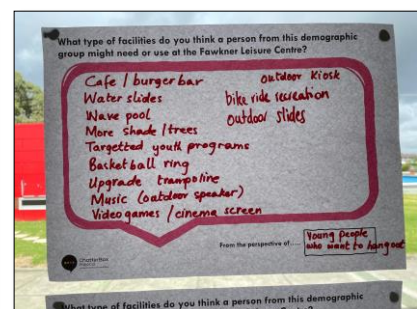 What type of facilities do you think a person from this demographic
group might need or use at the Fawkner Leisure Centre?
Cafe / burger bar
Water slides
Wave pool
More shade / trees
Targetted youth programs
Basketball ring
Upgrade trampoline
Music (outdoor speaker)
Video games / cinema screen
outdoor Kiosk
bike ride recreation
outdoor slides
From the perspective of
Young people
who want to hangout
Chatterbox
What type of facilities do you think a person from this demographic